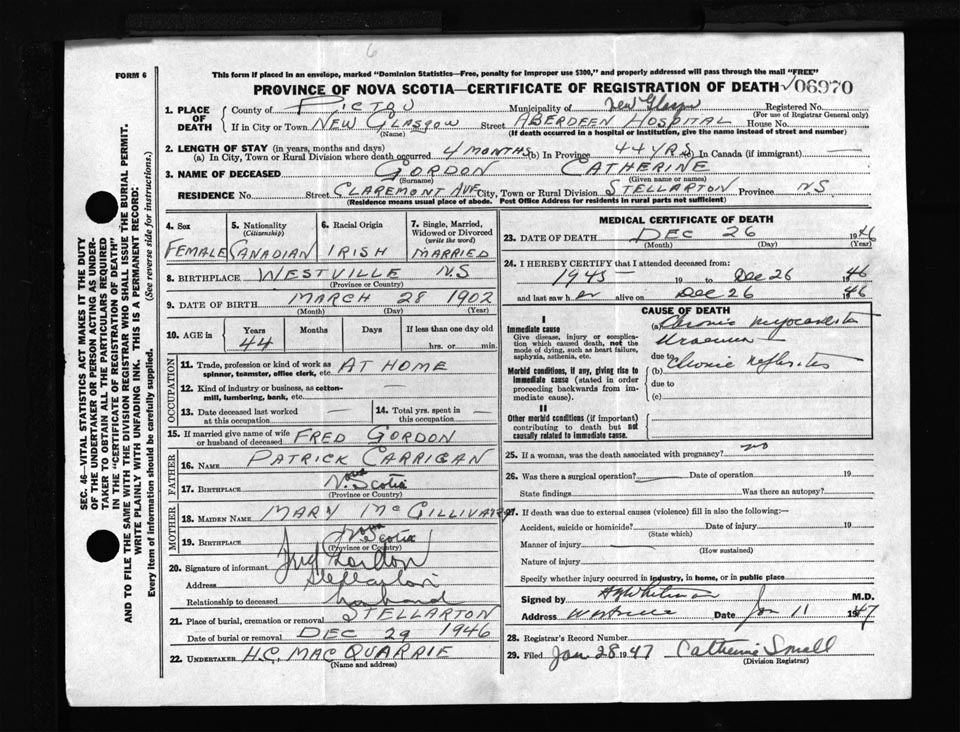 6
FORM 6
This form if placed in an envelope, marked "Dominion Statistics—Free, penalty for improper use $300," and properly addressed will pass through the mail "FREE"
PROVINCE OF NOVA SCOTIA—CERTIFICATE OF REGISTRATION OF DEATH 06970
1. PLACE OF DEATH County of PICTOU Municipality of New Glasgow Registered No.
(For use of Registrar General only)
If in City or Town NEW GLASGOW Street ABERDEEN HOSPITAL House No.
(Name) (If death occurred in a hospital or institution, give the name instead of street and number)
2. LENGTH OF STAY (in years, months and days)
(a) In City, Town or Rural Division where death occurred 4 MONTHS (b) In Province 44 YRS (c) In Canada (if immigrant) —
3. NAME OF DECEASED GORDON CATHERINE
(Surname) (Given name or names)
RESIDENCE No. Street CLAREMONT AVE City, Town or Rural Division STELLARTON Province NS
(Residence means usual place of abode. Post Office Address for residents in rural parts not sufficient)
4. Sex 5. Nationality (Citizenship) 6. Racial Origin 7. Single, Married, Widowed or Divorced (write the word)
FEMALE CANADIAN IRISH MARRIED
8. BIRTHPLACE WESTVILLE N.S
(Province or Country)
9. DATE OF BIRTH MARCH 28 1902
(Month) (Day) (Year)
10. AGE in Years Months Days If less than one day old
44 hrs. or min.
OCCUPATION
11. Trade, profession or kind of work as spinner, teamster, office clerk, etc. AT HOME
12. Kind of industry or business, as cotton-mill, lumbering, bank, etc. —
13. Date deceased last worked at this occupation — 14. Total yrs. spent in this occupation —
15. If married give name of wife or husband of deceased FRED GORDON
FATHER
16. NAME PATRICK CARRIGAN
17. BIRTHPLACE Nova Scotia
(Province or Country)
MOTHER
18. MAIDEN NAME MARY MC GILLIVARY
19. BIRTHPLACE Nova Scotia
(Province or Country)
20. Signature of informant Fred Gordon
Address Stellarton
Relationship to deceased husband
21. Place of burial, cremation or removal STELLARTON
Date of burial or removal DEC 29 1946
22. UNDERTAKER H.C. MACQUARRIE
(Name and address)
MEDICAL CERTIFICATE OF DEATH
23. DATE OF DEATH DEC 26 1946
(Month) (Day) (Year)
24. I HEREBY CERTIFY that I attended deceased from:
1945 19 to Dec 26 1946
and last saw her alive on Dec 26 1946
CAUSE OF DEATH
I
Immediate cause
Give disease, injury or complication which caused death, not the mode of dying, such as heart failure, asphyxia, asthenia, etc.
(a) Chronic myocarditis
Uraemia
due to
Morbid conditions, if any, giving rise to immediate cause (stated in order proceeding backwards from immediate cause).
(b) Chronic Nefritis
due to
(c)
II
Other morbid conditions (if important) contributing to death but not causally related to immediate cause.
25. If a woman, was the death associated with pregnancy? no
26. Was there a surgical operation? Date of operation 19
State findings Was there an autopsy?
27. If death was due to external causes (violence) fill in also the following:—
Accident, suicide or homicide? Date of injury 19
(State which)
Manner of injury
(How sustained)
Nature of injury
Specify whether injury occurred in industry, in home, or in public place
Signed by Whitman M.D.
Address Westville Date Jan 11 1947
28. Registrar's Record Number
29. Filed Jan 28 1947 Catherine Small
(Division Registrar)
SEC. 46—VITAL STATISTICS ACT MAKES IT THE DUTY
OF THE UNDERTAKER OR PERSON ACTING AS UNDER-
TAKER TO OBTAIN ALL THE PARTICULARS REQUIRED
IN THE "CERTIFICATE OF REGISTRATION OF DEATH"
AND TO FILE THE SAME WITH THE DIVISION REGISTRAR WHO SHALL ISSUE THE BURIAL PERMIT.
WRITE PLAINLY WITH UNFADING INK. THIS IS A PERMANENT RECORD:
Every item of information should be carefully supplied. (See reverse side for instructions.)